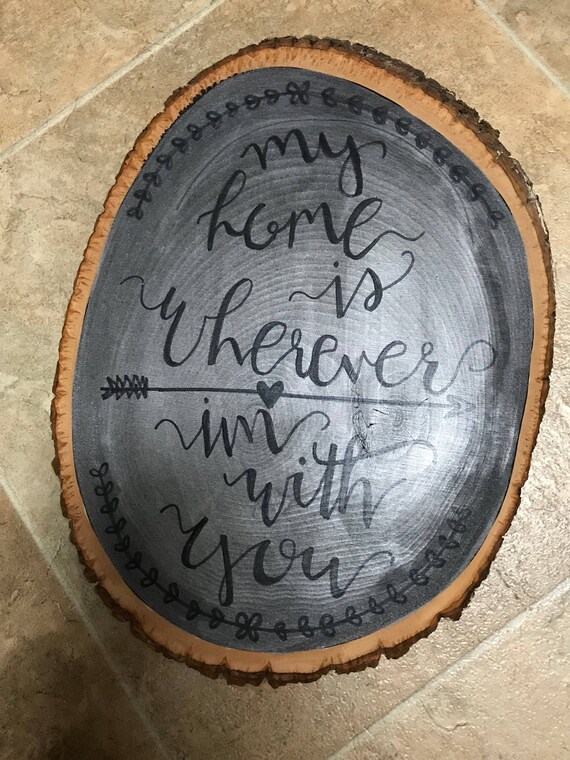 my
home
is
wherever
im
with
you